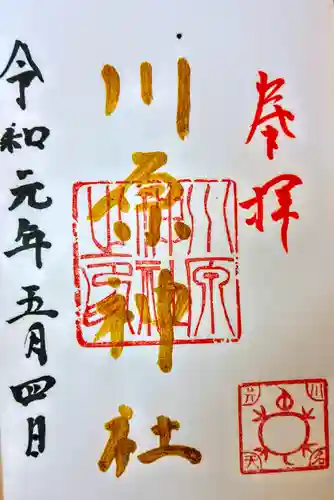 奉拝
川原神社
令和元年五月四日
川原神社之印
川名弁天